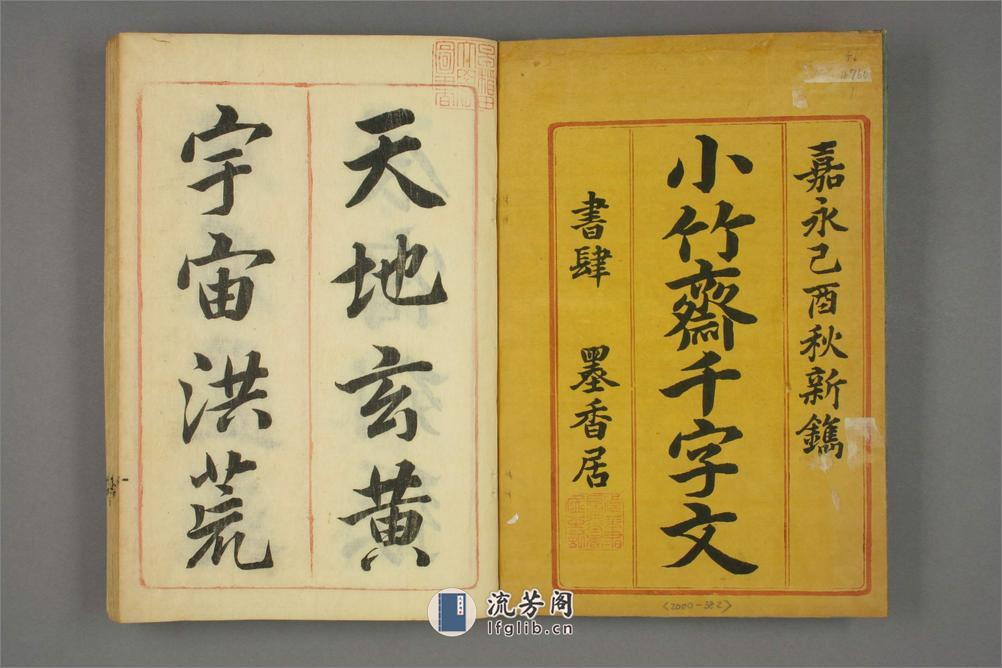 嘉永己酉秋新鐫
小竹齋千字文
書肆 墨香居
天地玄黄
宇宙洪荒
流芳阁
lfglib.cn
<2000-382>